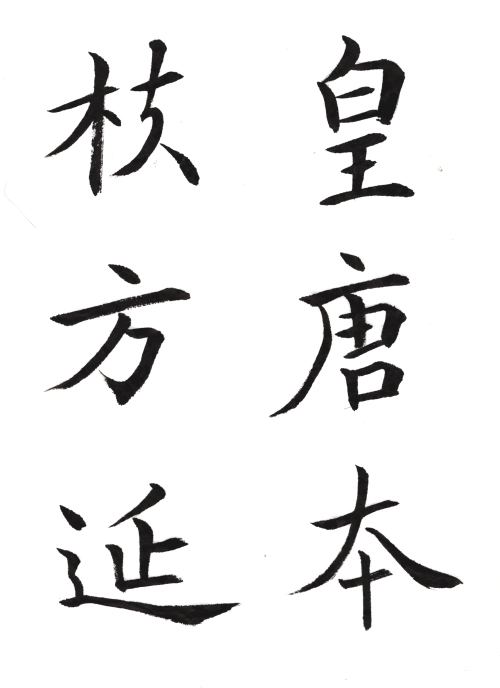 皇唐夲
枝方延